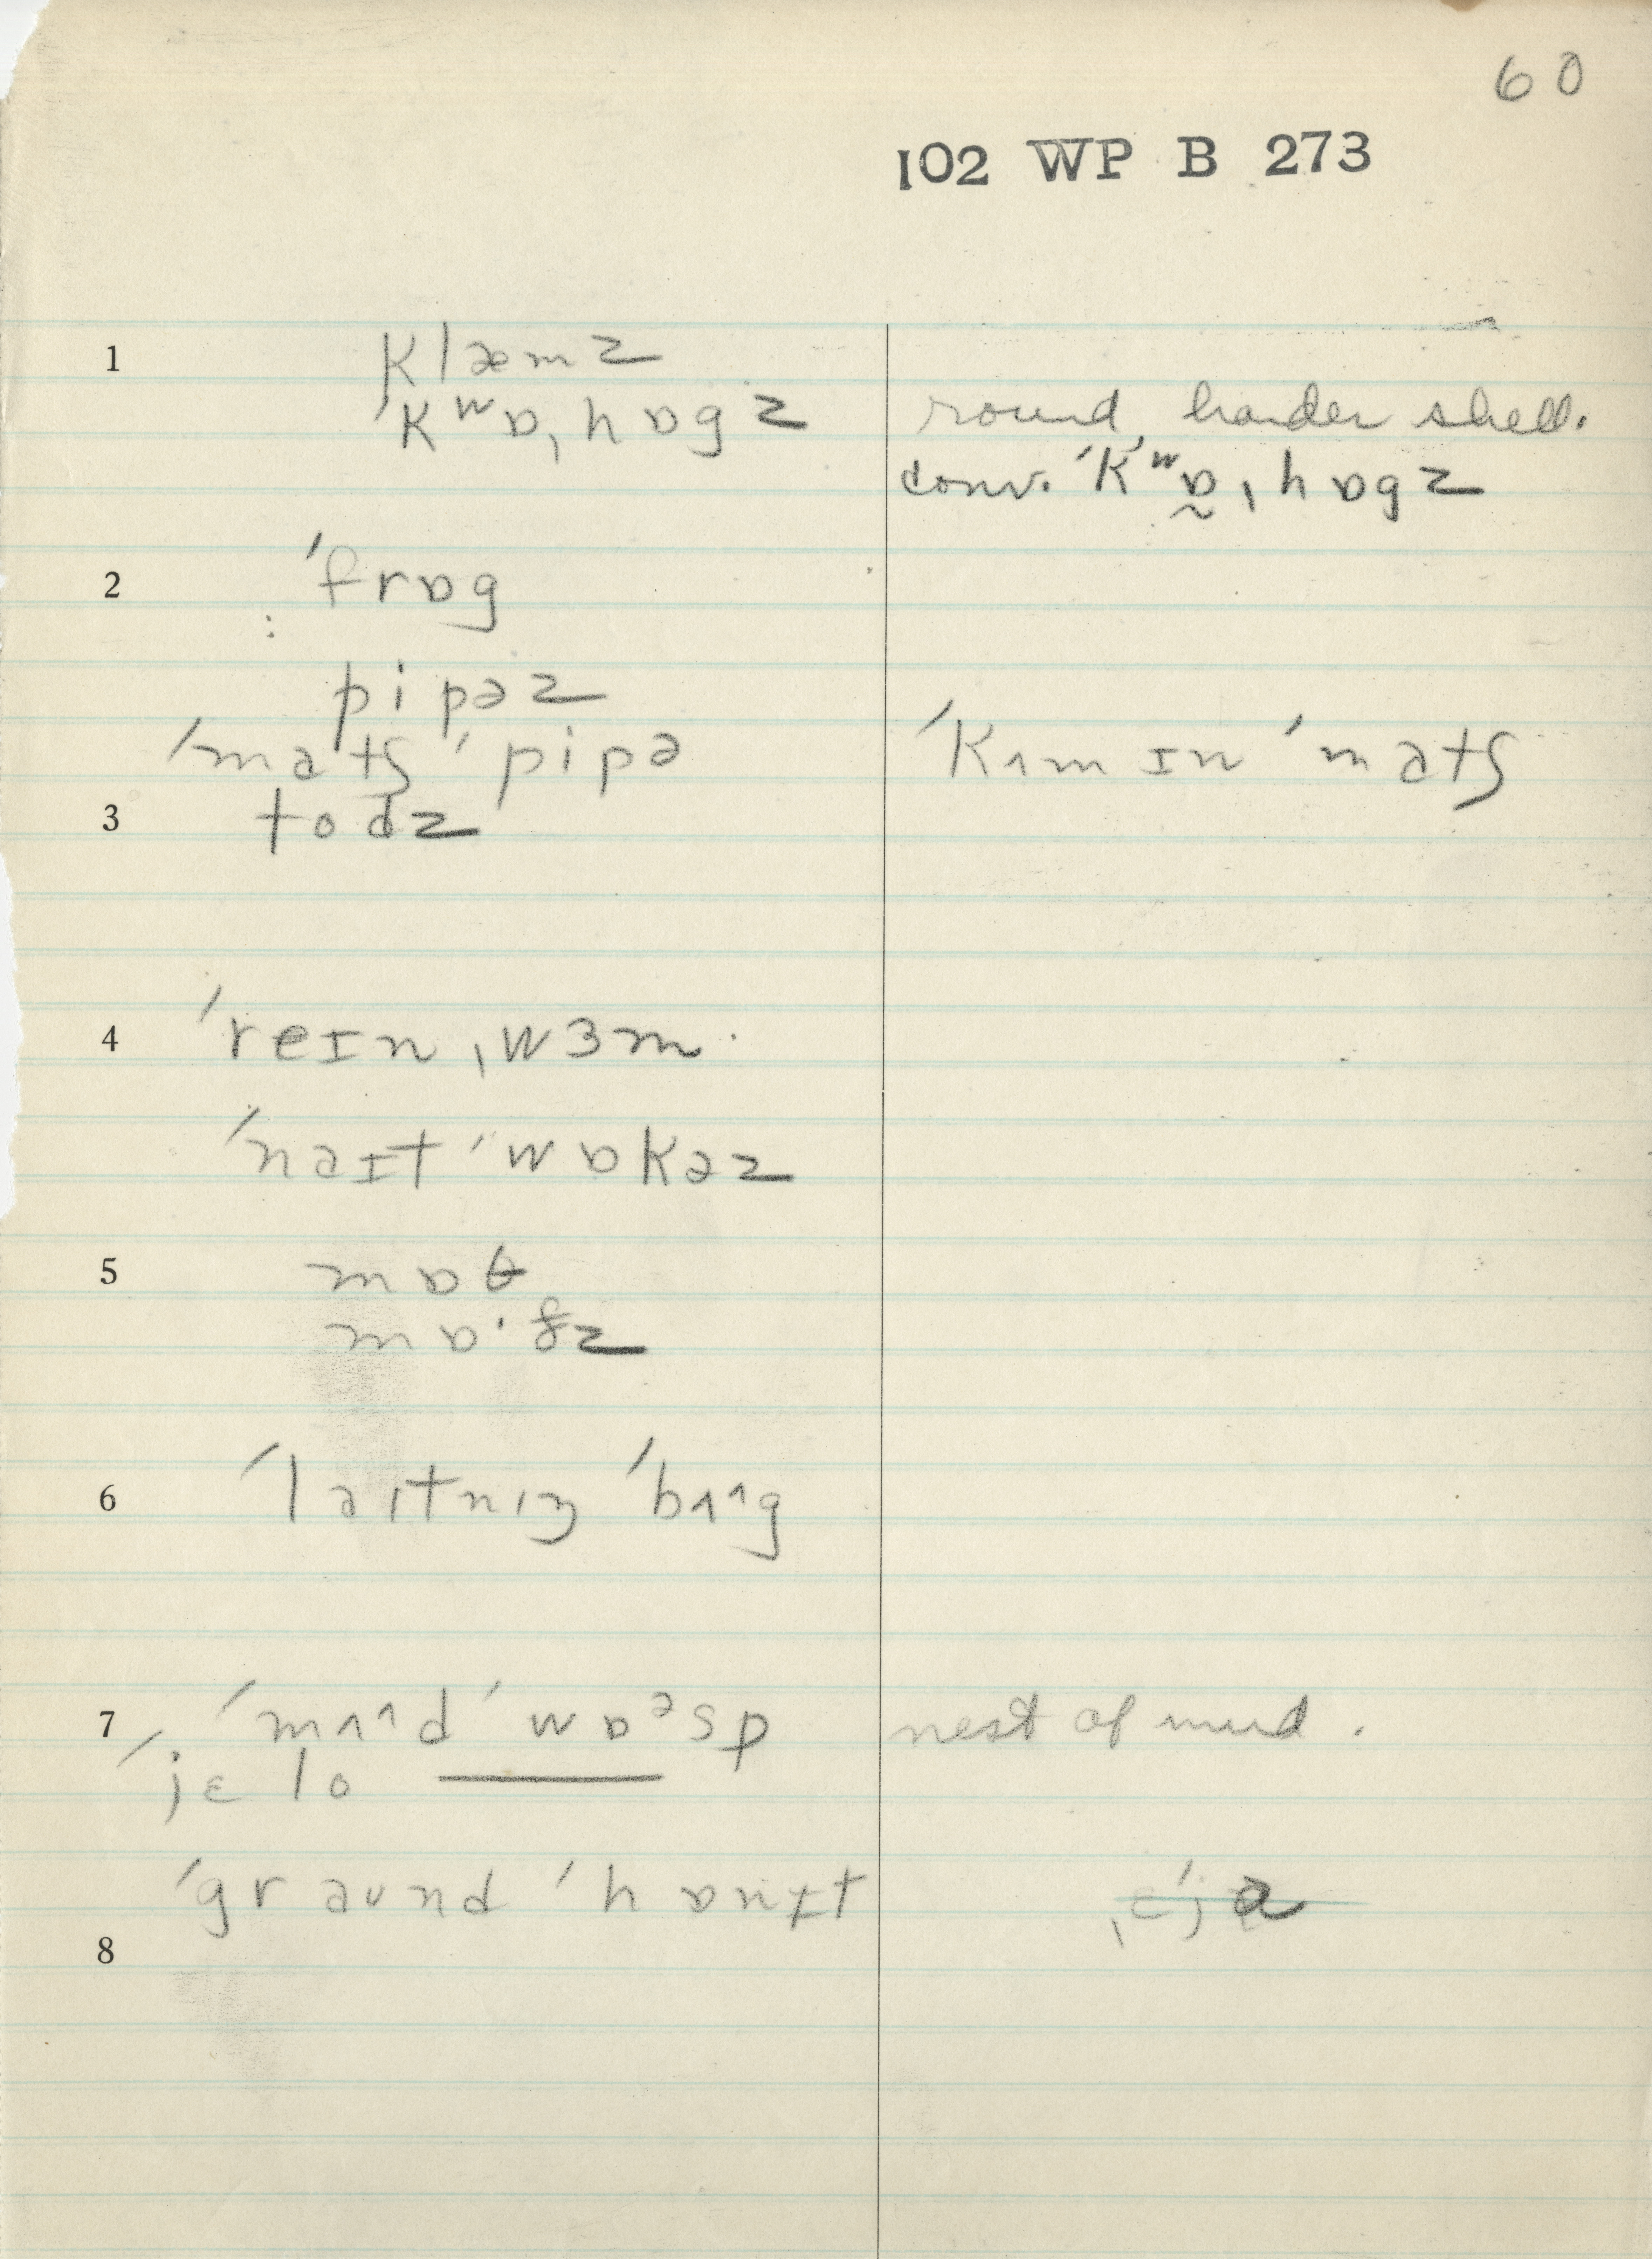 60
102 WP B 273
1 klæmz
ˈkʷɒˌhɒgz round, harder shell.
conv. ˈkʷɒ̰ˌhɒgz
2 ˈfrɒg
pipəz
ˈmatʃ ˈpipə ˈkʌm ɪn ˈmatʃ
3 todz
4 ˈreɪnˌwɜm
ˈnaɪt ˈwɒkəz
5 mɒθ
mɒ·ðz
6 ˈlaɪtnɪŋ ˈbʌ^g
7 ˈmʌ^d ˈwɒᵊsp nest of mud.
ˈjɛlo ———
ˈgraund ˈhɒnɪt
8